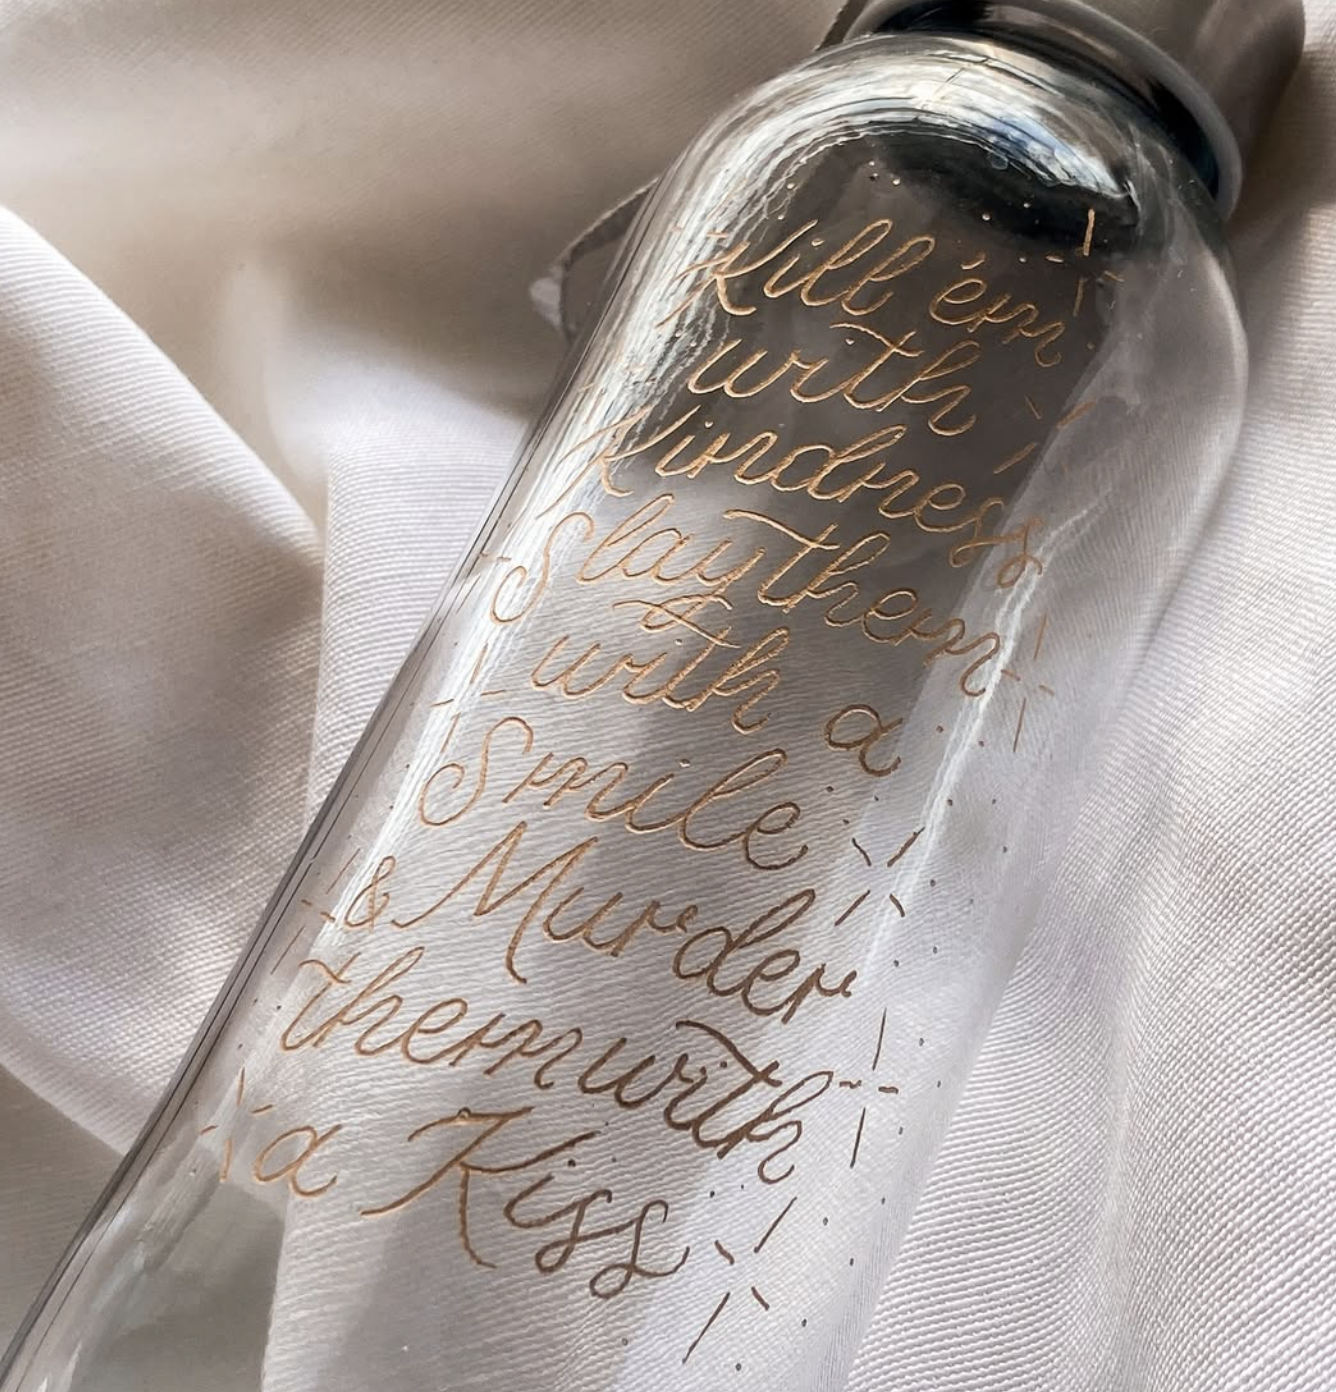 Kill 'em
with
Kindness
Slay them
with a
Smile
& Murder
them with
a Kiss